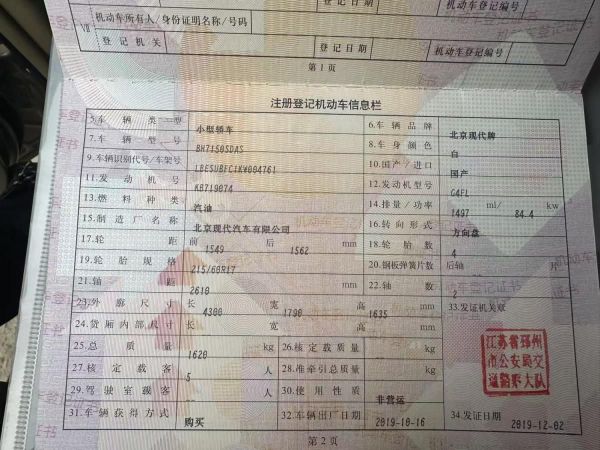 机动车登记编号
Ⅶ 机动车所有人/身份证明名称/号码
登记机关 登记日期 机动车登记编号
第1页
注册登记机动车信息栏
5.车辆类型 小型轿车 6.车辆品牌 北京现代牌
7.车辆型号 BH7150SDAS 8.车身颜色 白
9.车辆识别代号/车架号 LBESUBFC1KW004761 10.国产/进口 国产
11.发动机号 KB719074 12.发动机型号 G4FL
13.燃料种类 汽油 14.排量/功率 1497 ml/ 84.4 kw
15.制造厂名称 北京现代汽车有限公司 16.转向形式 方向盘
17.轮距 前 1549 后 1562 mm 18.轮胎数 4
19.轮胎规格 215/60R17 20.钢板弹簧片数 后轴 片
21.轴距 2610 mm 22.轴数 2
23.外廓尺寸 长 4300 宽 1790 高 1635 mm 33.发证机关章
24.货厢内部尺寸 长 宽 高 mm
25.总质量 1620 kg 26.核定载质量 kg
27.核定载客 5 人 28.准牵引总质量 kg
29.驾驶室载客 人 30.使用性质 非营运
31.车辆获得方式 购买 32.车辆出厂日期 2019-10-16 34.发证日期 2019-12-02
江苏省邳州
市公安局交
通警察大队
第2页